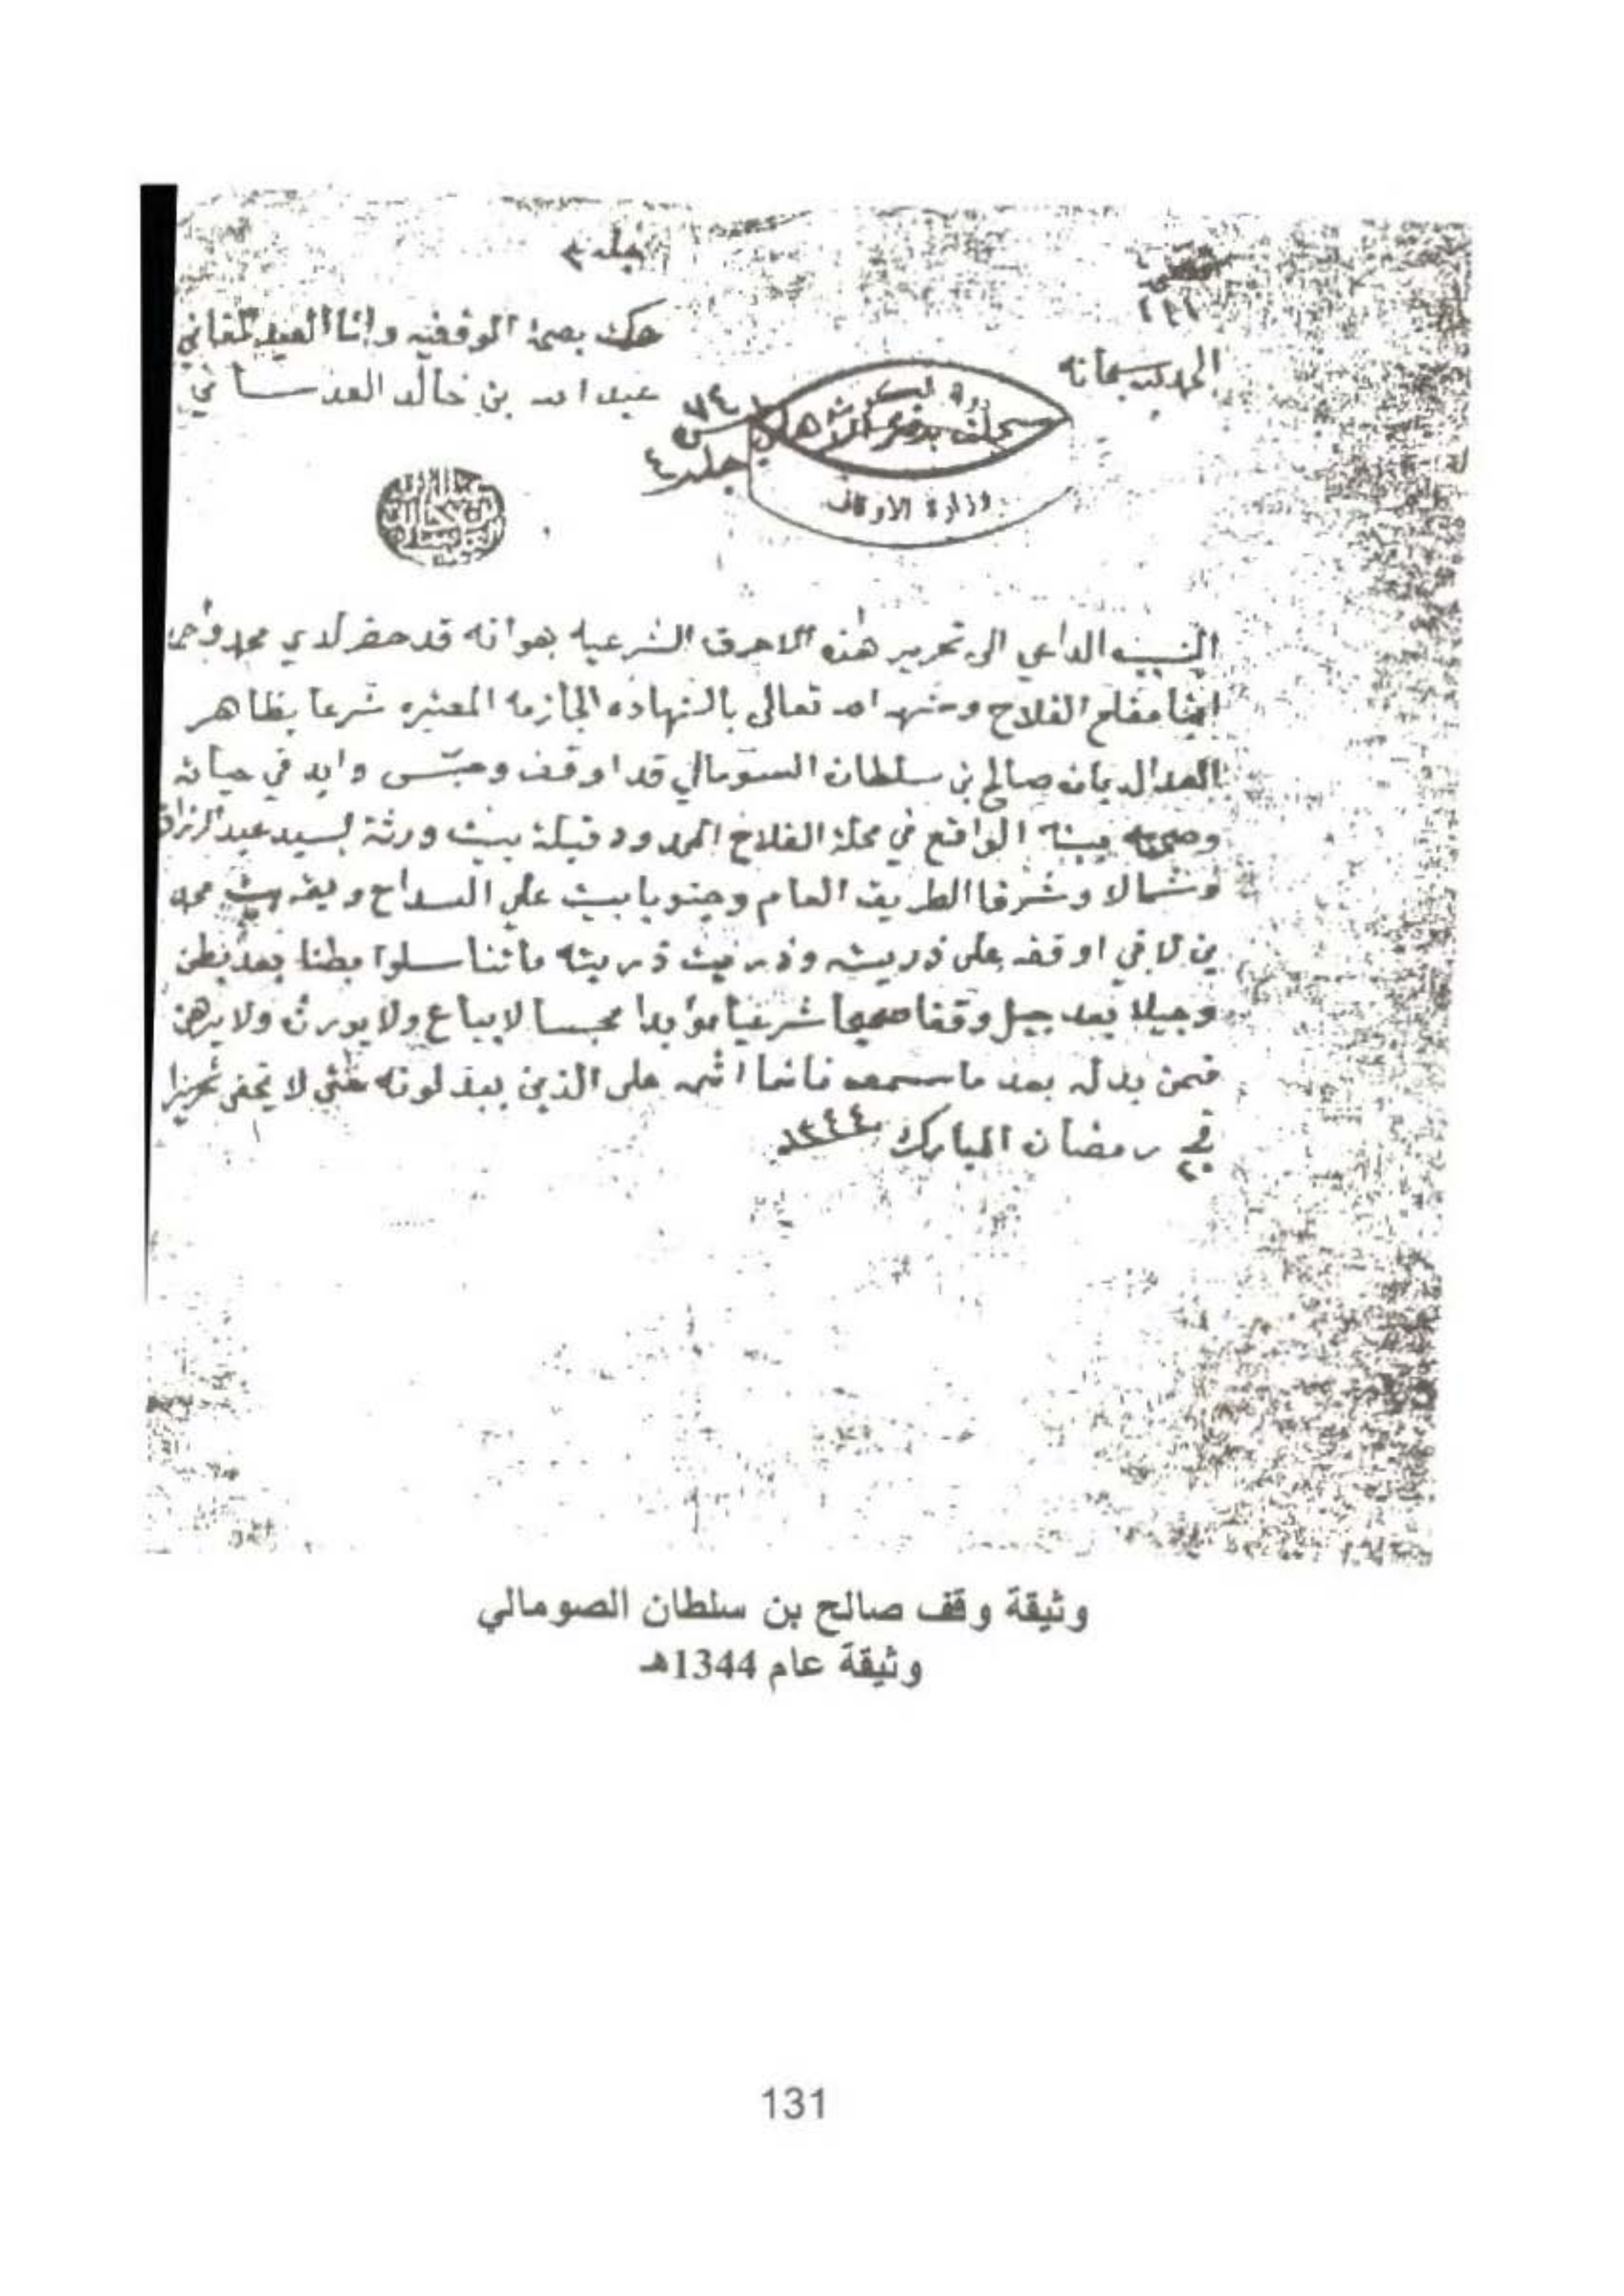 جلد ٣
الحمد لله سبحانه
حكمت بصحة الوقفيه وانا العبد الفاني
عبد الله بن خالد العدساني
٧٤
س
جلد ٤
وزارة الاوقاف
السبب الداعي الى تحرير هذه الاحرف الشرعيه هو انه قد حضر لدي محمد واحمد
ابنا مفلح الفلاح وشهد الله تعالى بالشهاده الجازمه المعتبره شرعا بظاهر
العداله بان صالح بن سلطان الصومالي قد اوقف وحبّس وابد في حياته
وصحته بيته الواقع في محلة الفلاح المحدود قبلة بيت ورثة السيد عبد الرزاق
وشمالا وشرقا الطريق العام وجنوبا بيت علي السداح وبيت محمد
بن لافي اوقفه على ذريته وذريت ذريته ما تناسلوا بطنا بعد بطن
وجيلا بعد جيل وقفا صحيحا شرعيا مؤابدا محبسا لا يباع ولا يورث ولا يرهن
فمن بدله بعد ما سمعه فانما اثمه على الذين يبدلونه حتى لا يخفى تحريرا
في ٢٠ رمضان المبارك ١٣٤٤
وثيقة وقف صالح بن سلطان الصومالي
وثيقة عام 1344هـ
131